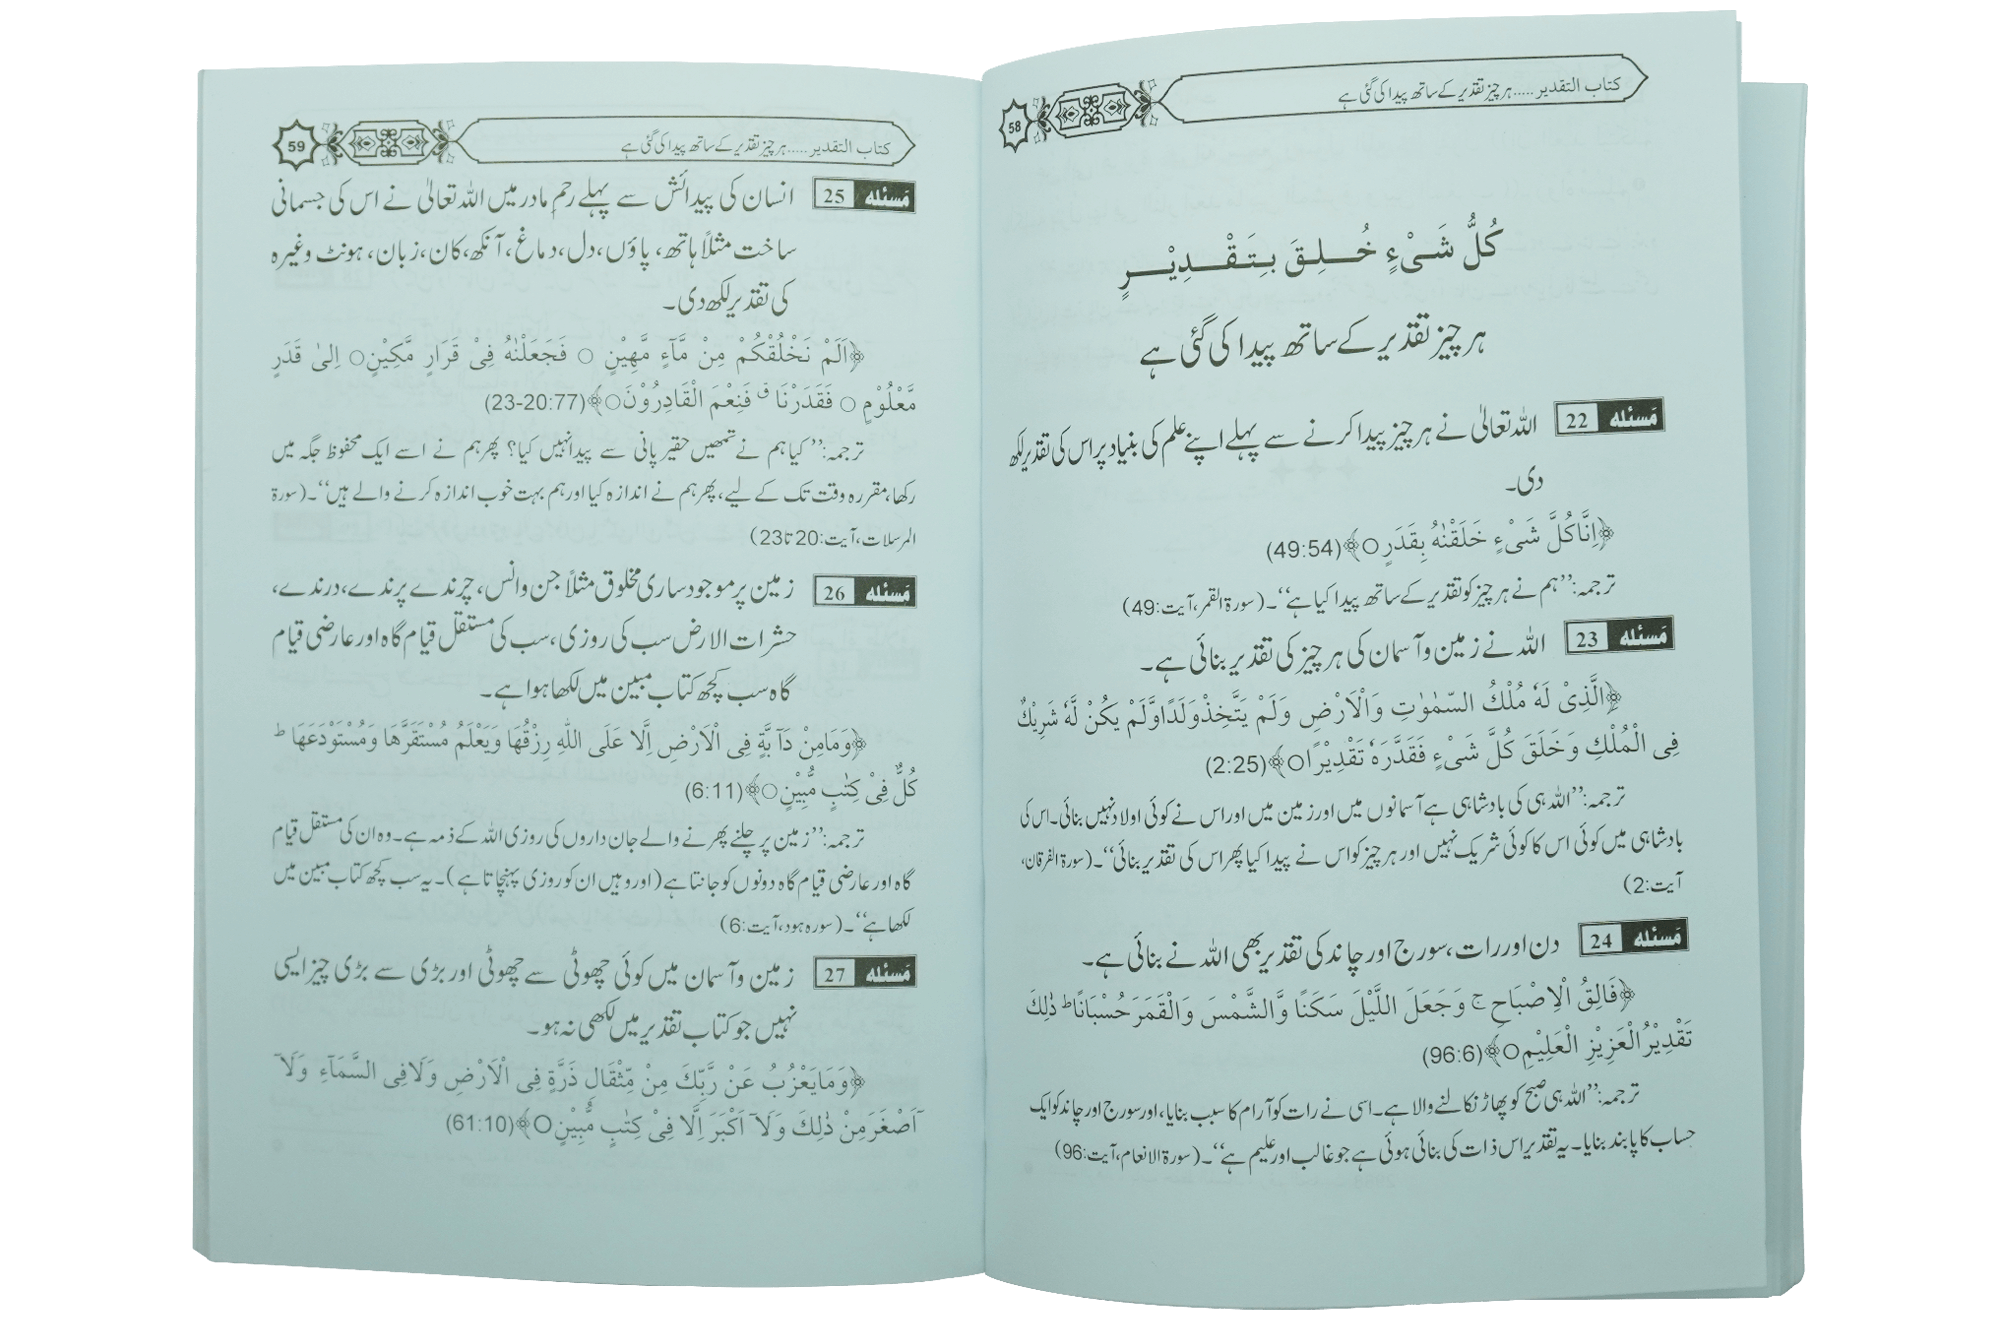 کتاب التقدیر.....ہر چیز تقدیر کے ساتھ پیدا کی گئی ہے
58
كُلُّ شَىْءٍ خُلِقَ بِتَقْدِيْرٍ
ہر چیز تقدیر کے ساتھ پیدا کی گئی ہے
مَسئله 22 اللہ تعالیٰ نے ہر چیز پیدا کرنے سے پہلے اپنے علم کی بنیاد پر اس کی تقدیر لکھ
دی۔
﴿اِنَّا كُلَّ شَىْءٍ خَلَقْنٰهُ بِقَدَرٍ○﴾(49:54)
ترجمہ:’’ہم نے ہر چیز کو تقدیر کے ساتھ پیدا کیا ہے‘‘۔(سورۃ القمر،آیت:49)
مَسئله 23 اللہ نے زمین وآسمان کی ہر چیز کی تقدیر بنائی ہے۔
﴿الَّذِىْ لَهٗ مُلْكُ السَّمٰوٰتِ وَالْاَرْضِ وَلَمْ يَتَّخِذْ وَلَدًا وَّلَمْ يَكُنْ لَّهٗ شَرِيْكٌ
فِى الْمُلْكِ وَخَلَقَ كُلَّ شَىْءٍ فَقَدَّرَهٗ تَقْدِيْرًا○﴾(2:25)
ترجمہ:’’اللہ ہی کی بادشاہی ہے آسمانوں میں اور زمین میں اور اس نے کوئی اولاد نہیں بنائی۔اس کی
بادشاہی میں کوئی اس کا کوئی شریک نہیں اور ہر چیز کو اس نے پیدا کیا پھر اس کی تقدیر بنائی‘‘۔(سورۃ الفرقان،
آیت:2)
مَسئله 24 دن اور رات، سورج اور چاند کی تقدیر بھی اللہ نے بنائی ہے۔
﴿فَالِقُ الْاِصْبَاحِ ج وَجَعَلَ اللَّيْلَ سَكَنًا وَّالشَّمْسَ وَالْقَمَرَ حُسْبَانًا ط ذٰلِكَ
تَقْدِيْرُ الْعَزِيْزِ الْعَلِيْمِ○﴾(96:6)
ترجمہ:’’اللہ ہی صبح کو پھاڑ نکالنے والا ہے۔اسی نے رات کو آرام کا سبب بنایا،اور سورج اور چاند کو ایک
حساب کا پابند بنایا۔یہ تقدیر اس ذات کی بنائی ہوئی ہے جو غالب اور علیم ہے‘‘۔(سورۃ الانعام،آیت:96)
کتاب التقدیر.....ہر چیز تقدیر کے ساتھ پیدا کی گئی ہے
59
مَسئله 25 انسان کی پیدائش سے پہلے رحم مادر میں اللہ تعالیٰ نے اس کی جسمانی
ساخت مثلاً ہاتھ، پاؤں، دل، دماغ، آنکھ، کان، زبان، ہونٹ وغیرہ
کی تقدیر لکھ دی۔
﴿اَلَمْ نَخْلُقْكُمْ مِنْ مَّآءٍ مَّهِيْنٍ ○ فَجَعَلْنٰهُ فِىْ قَرَارٍ مَّكِيْنٍ○ اِلىٰ قَدَرٍ
مَّعْلُوْمٍ ○ فَقَدَرْنَا ق فَنِعْمَ الْقَادِرُوْنَ○﴾(77:20-23)
ترجمہ:’’کیا ہم نے تمھیں حقیر پانی سے پیدا نہیں کیا؟ پھر ہم نے اسے ایک محفوظ جگہ میں
رکھا،مقررہ وقت تک کے لیے، پھر ہم نے اندازہ کیا اور ہم بہت خوب اندازہ کرنے والے ہیں‘‘۔(سورۃ
المرسلات،آیت:20تا23)
مَسئله 26 زمین پر موجود ساری مخلوق مثلاً جن وانس، چرندے پرندے، درندے،
حشرات الارض سب کی روزی، سب کی مستقل قیام گاہ اور عارضی قیام
گاہ سب کچھ کتاب مبین میں لکھا ہوا ہے۔
﴿وَمَا مِنْ دَآبَّةٍ فِى الْاَرْضِ اِلَّا عَلَى اللّٰهِ رِزْقُهَا وَيَعْلَمُ مُسْتَقَرَّهَا وَمُسْتَوْدَعَهَا ط
كُلٌّ فِىْ كِتٰبٍ مُّبِيْنٍ○﴾(6:11)
ترجمہ:’’زمین پر چلنے پھرنے والے جان داروں کی روزی اللہ کے ذمہ ہے۔وہ ان کی مستقل قیام
گاہ اور عارضی قیام گاہ دونوں کو جانتا ہے(اور وہیں ان کو روزی پہنچاتا ہے)۔یہ سب کچھ کتاب مبین میں
لکھا ہے‘‘۔(سورہ ہود،آیت:6)
مَسئله 27 زمین وآسمان میں کوئی چھوٹی سے چھوٹی اور بڑی سے بڑی چیز ایسی
نہیں جو کتاب تقدیر میں لکھی نہ ہو۔
﴿وَمَا يَعْزُبُ عَنْ رَّبِّكَ مِنْ مِّثْقَالِ ذَرَّةٍ فِى الْاَرْضِ وَلَا فِى السَّمَآءِ وَلَآ
اَصْغَرَ مِنْ ذٰلِكَ وَلَآ اَكْبَرَ اِلَّا فِىْ كِتٰبٍ مُّبِيْنٍ○﴾(61:10)